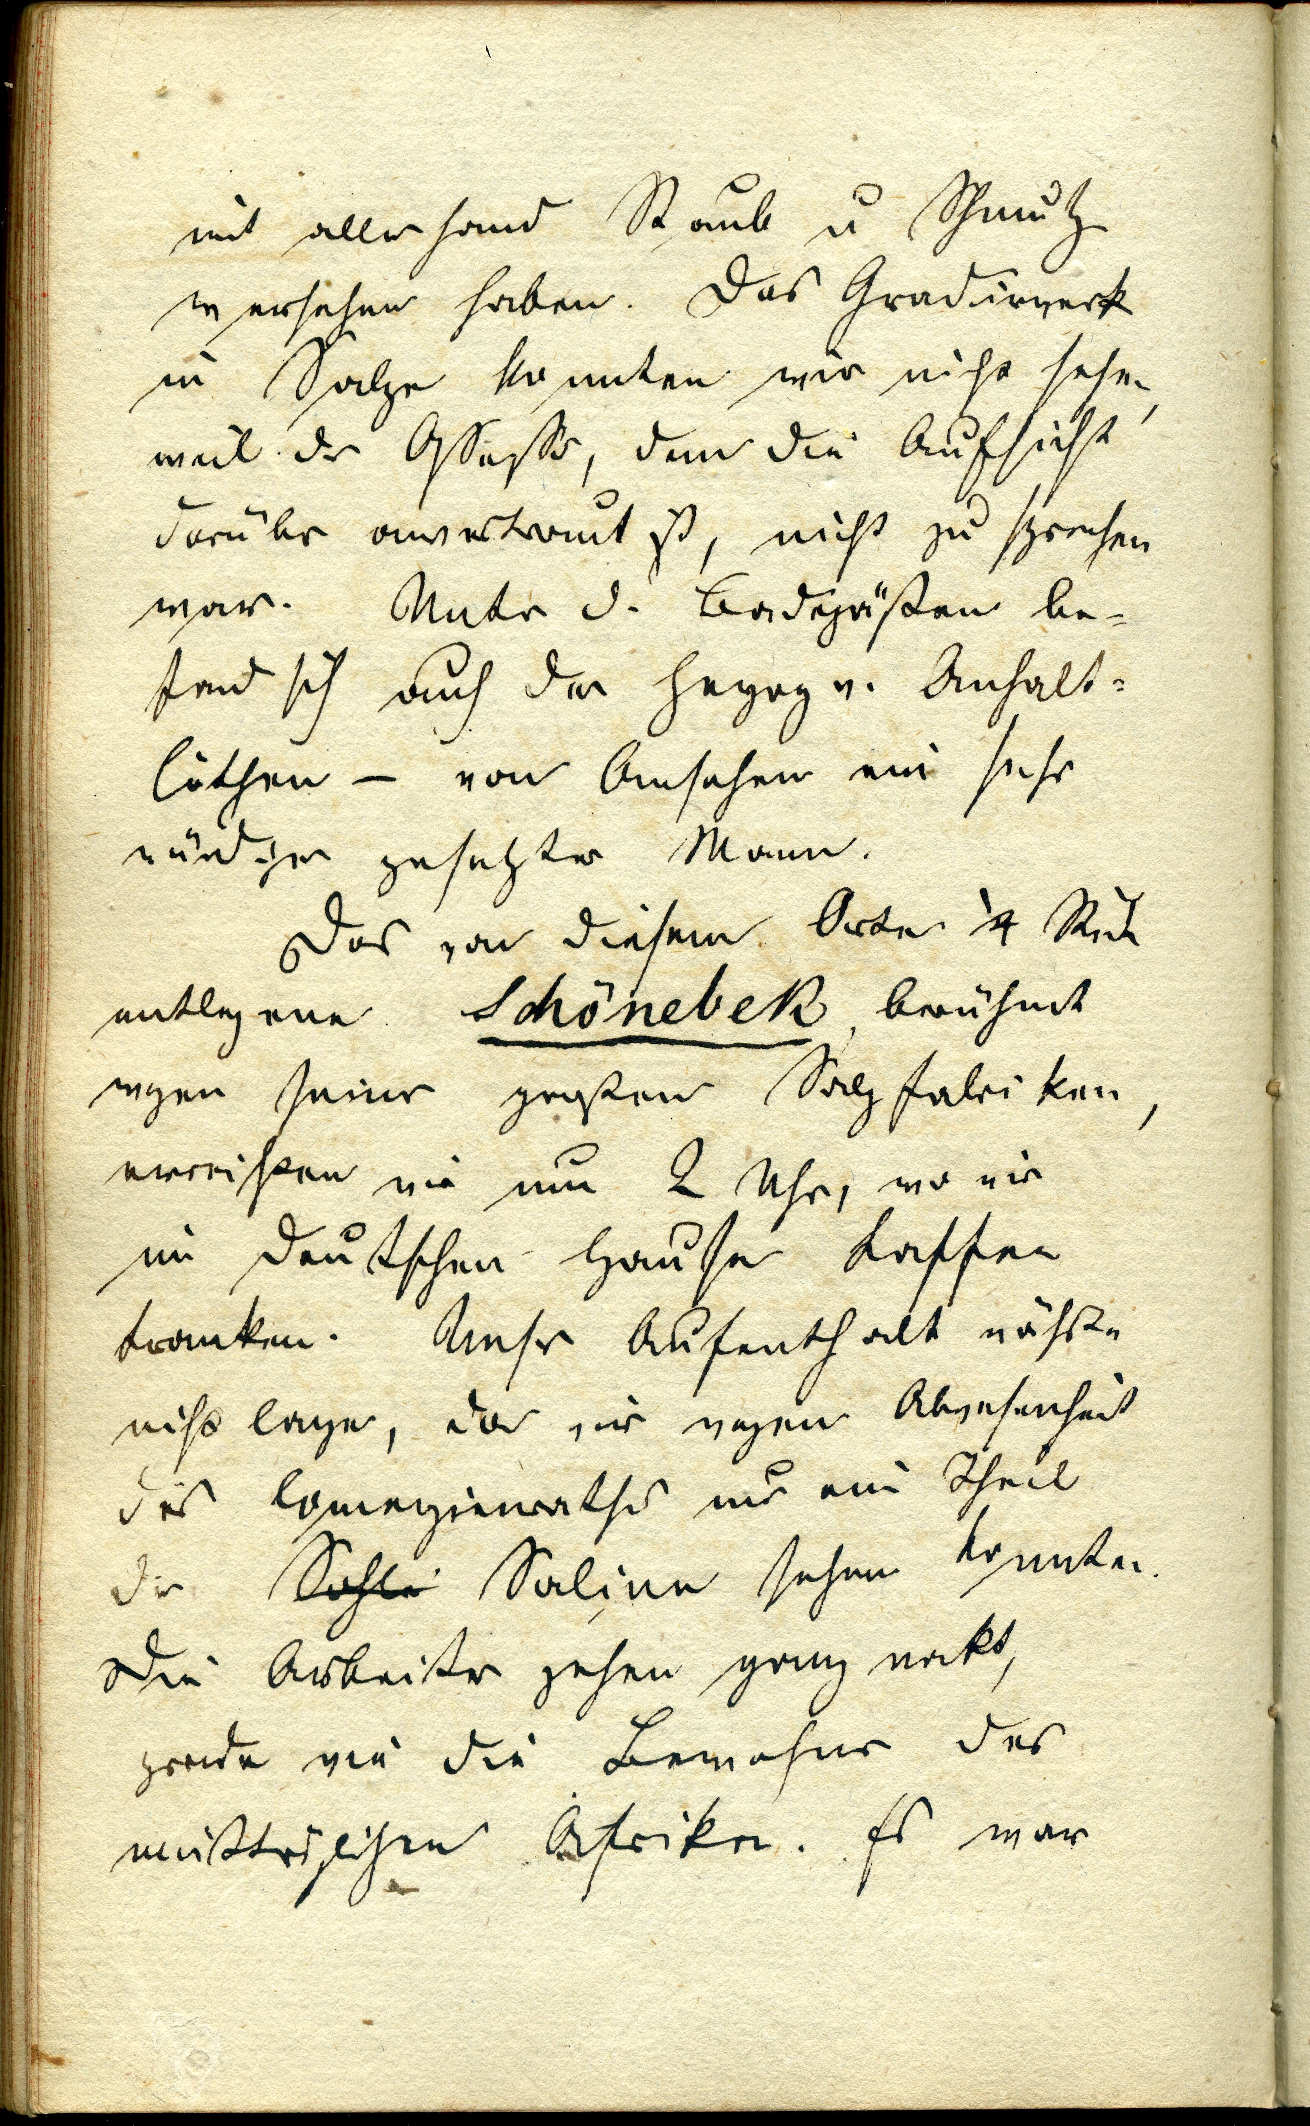 mit allerhand Staub u Schmutz
versehen haben. Das Gradirwerk
in Salze konnten wir nicht sehen,
weil der Assessor, dem die Aufsicht
darüber anvertraut ist, nicht zu sprechen
war. Unter d. Badegästen be-
fand sich auch der Herzog v. Anhalt-
Cöthen – von Ansehen ein sehr
würdiger gesetzter Mann.
Das von diesem Orte ¼ Stde
entlegene Schönebek, berühmt
wegen seiner großen Salzfabriken,
erreichten wir um 2 Uhr, wo wir
im deutschen Hause Kaffee
tranken. Unser Aufenthalt währte
nicht lange, da wir wegen Abwesenheit
des Commerzienraths nur ein Theil
der Sohle Saline sehen konnten.
Die Arbeiter gehen ganz nakt,
grade wie die Bewohner des
mittäglichen Afrika. Es war